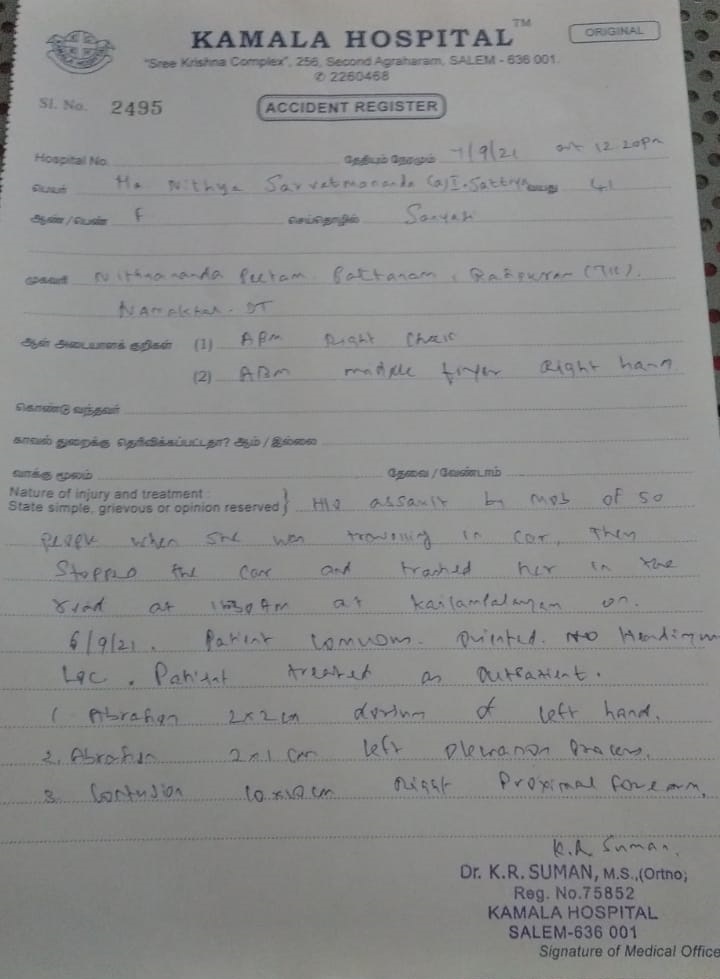 TM
KAMALA HOSPITAL
ORIGINAL
"Sree Krishna Complex", 256, Second Agraharam, SALEM - 636 001.
✆ 2260468
Sl. No. 2495
ACCIDENT REGISTER
Hospital No. தேதியும் நேரமும் 7/9/21 at 12.20pm
பெயர் Ma Nithya (a) I. Sathya வயது 41
ஆண் / பெண் F செய்தொழில்
முகவரி Peetam. Pattanam, (TK).
DT
ஆள் அடையாளக் குறிகள் (1) ABM Right
(2) ABM middle finger Right hand
கொண்டு வந்தவர்
காவல் துறைக்கு தெரிவிக்கப்பட்டதா? ஆம் / இல்லை
வாக்கு மூலம் தேவை / வேண்டாம்
Nature of injury and treatment :
State simple, grievous or opinion reserved } H/o assault by mob of 50
people when she was travelling in car, They
stopped the car and trashed her in the
road at at on.
6/9/21. Patient oriented. No
LOC. Patient treated as outpatient.
1. Abrasion 2x2cm dorsum of left hand.
2. Abrasion 2x1 cm left process.
3. Contusion right proximal forearm.
K.R Suman.
Dr. K.R. SUMAN, M.S.,(Ortho;
Reg. No.75852
KAMALA HOSPITAL
SALEM-636 001
Signature of Medical Office